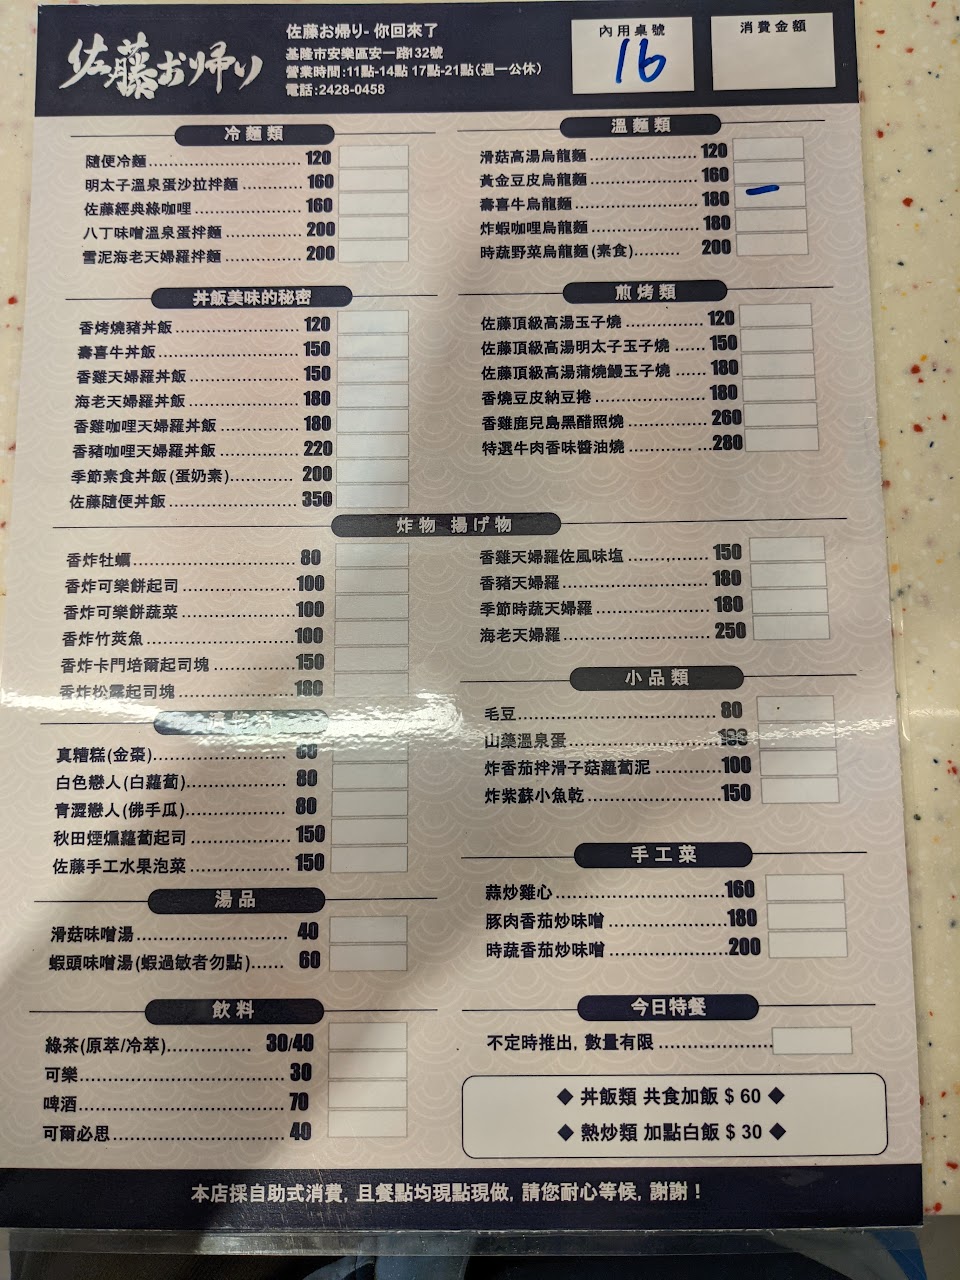 佐藤お帰り
佐藤お帰り-你回來了
基隆市安樂區安一路132號
營業時間:11點-14點 17點-21點(週一公休)
電話:2428-0458
內用桌號
16
消費金額
冷麵類
隨便冷麵 120
明太子溫泉蛋沙拉拌麵 160
佐藤經典綠咖哩 160
八丁味噌溫泉蛋拌麵 200
雪泥海老天婦羅拌麵 200
溫麵類
滑菇高湯烏龍麵 120
黃金豆皮烏龍麵 160
壽喜牛烏龍麵 180
炸蝦咖哩烏龍麵 180
時蔬野菜烏龍麵(素食) 200
丼飯美味的秘密
香烤燒豬丼飯 120
壽喜牛丼飯 150
香雞天婦羅丼飯 150
海老天婦羅丼飯 180
香雞咖哩天婦羅丼飯 180
香豬咖哩天婦羅丼飯 220
季節素食丼飯(蛋奶素) 200
佐藤隨便丼飯 350
煎烤類
佐藤頂級高湯玉子燒 120
佐藤頂級高湯明太子玉子燒 150
佐藤頂級高湯蒲燒鰻玉子燒 180
香燒豆皮納豆捲 180
香雞鹿兒島黑醋照燒 260
特選牛肉香味醬油燒 280
炸物 揚げ物
香炸牡蠣 80
香炸可樂餅起司 100
香炸可樂餅蔬菜 100
香炸竹莢魚 100
香炸卡門培爾起司塊 150
香炸松露起司塊 180
香雞天婦羅佐風味塩 150
香豬天婦羅 180
季節時蔬天婦羅 180
海老天婦羅 250
真糟糕(金棗)
白色戀人(白蘿蔔) 80
青澀戀人(佛手瓜) 80
秋田煙燻蘿蔔起司 150
佐藤手工水果泡菜 150
小品類
毛豆 80
山藥溫泉蛋
炸香茄拌滑子菇蘿蔔泥 100
炸紫蘇小魚乾 150
湯品
滑菇味噌湯 40
蝦頭味噌湯(蝦過敏者勿點) 60
手工菜
蒜炒雞心 160
豚肉香茄炒味噌 180
時蔬香茄炒味噌 200
飲料
綠茶(原萃/冷萃) 30/40
可樂 30
啤酒 70
可爾必思 40
今日特餐
不定時推出, 數量有限
◆ 丼飯類 共食加飯 $ 60 ◆
◆ 熱炒類 加點白飯 $ 30 ◆
本店採自助式消費, 且餐點均現點現做, 請您耐心等候, 謝謝!